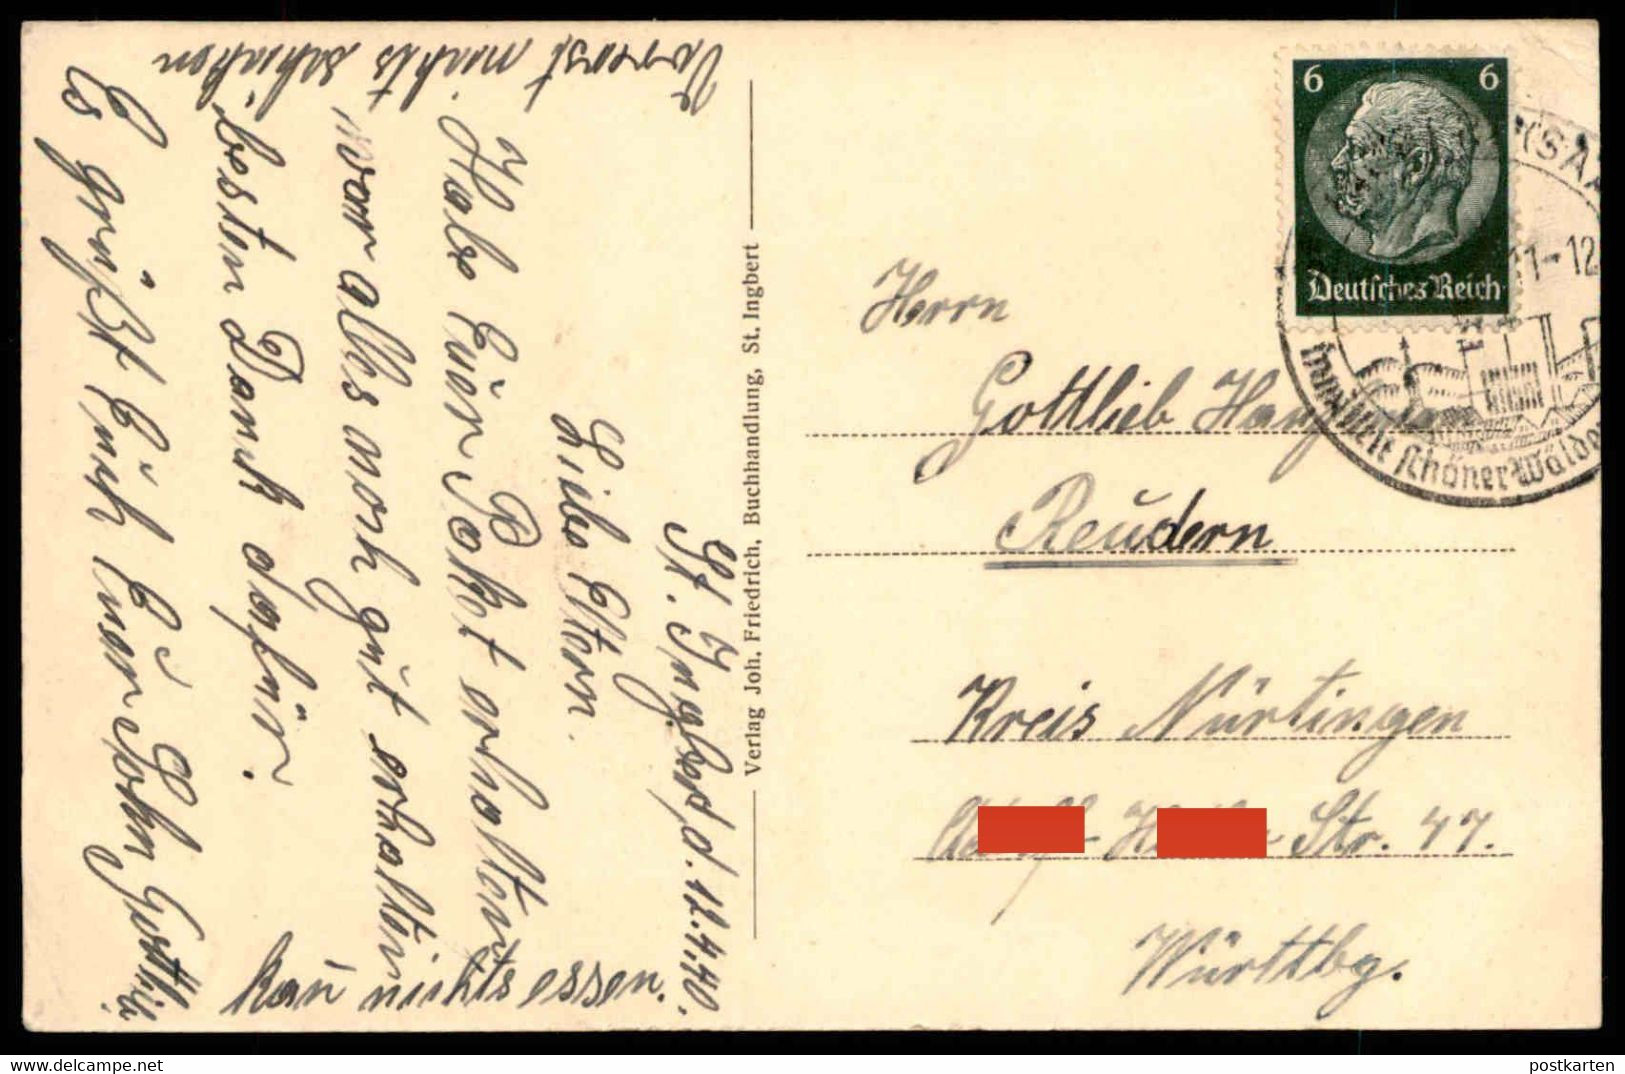 St. Ingbert, d. 12.4.40.
Liebe Eltern.
Habe Euer Paket erhalten
war alles noch gut erhalten
besten Dank dafür.
Es grüßt Euch Euer Sohn Gottlieb
Vorerst nichts schicken
kan nichts essen.
Verlag Joh. Friedrich, Buchhandlung, St. Ingbert
6 6
Deutsches Reich
(SAA
11-12
inmitten schöner Wälder
Herrn
Gottlieb
Reudern
Kreis Nürtingen
Str. 47.
Württbg.
postkarten